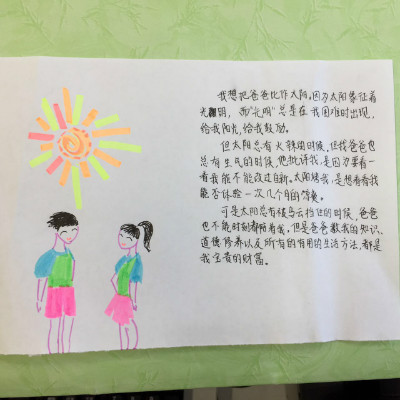 我想把爸爸比作太阳，因为太阳象征着
光明，而"光明"总是在我困难时出现，
给我阳光，给我鼓励。
但太阳总有火辣的时候，但我爸爸也
总有生气的时候，他批评我，是因为要看一
看我能不能改过自新。太阳烤我，是想看看我
能否体验一次几个月的
可是太阳总有被乌云挡住的时候，爸爸
也不能时刻都陪着我。但是爸爸教我的知识、
道德修养以及所有的有用的生活方法，都是
我宝贵的财富。